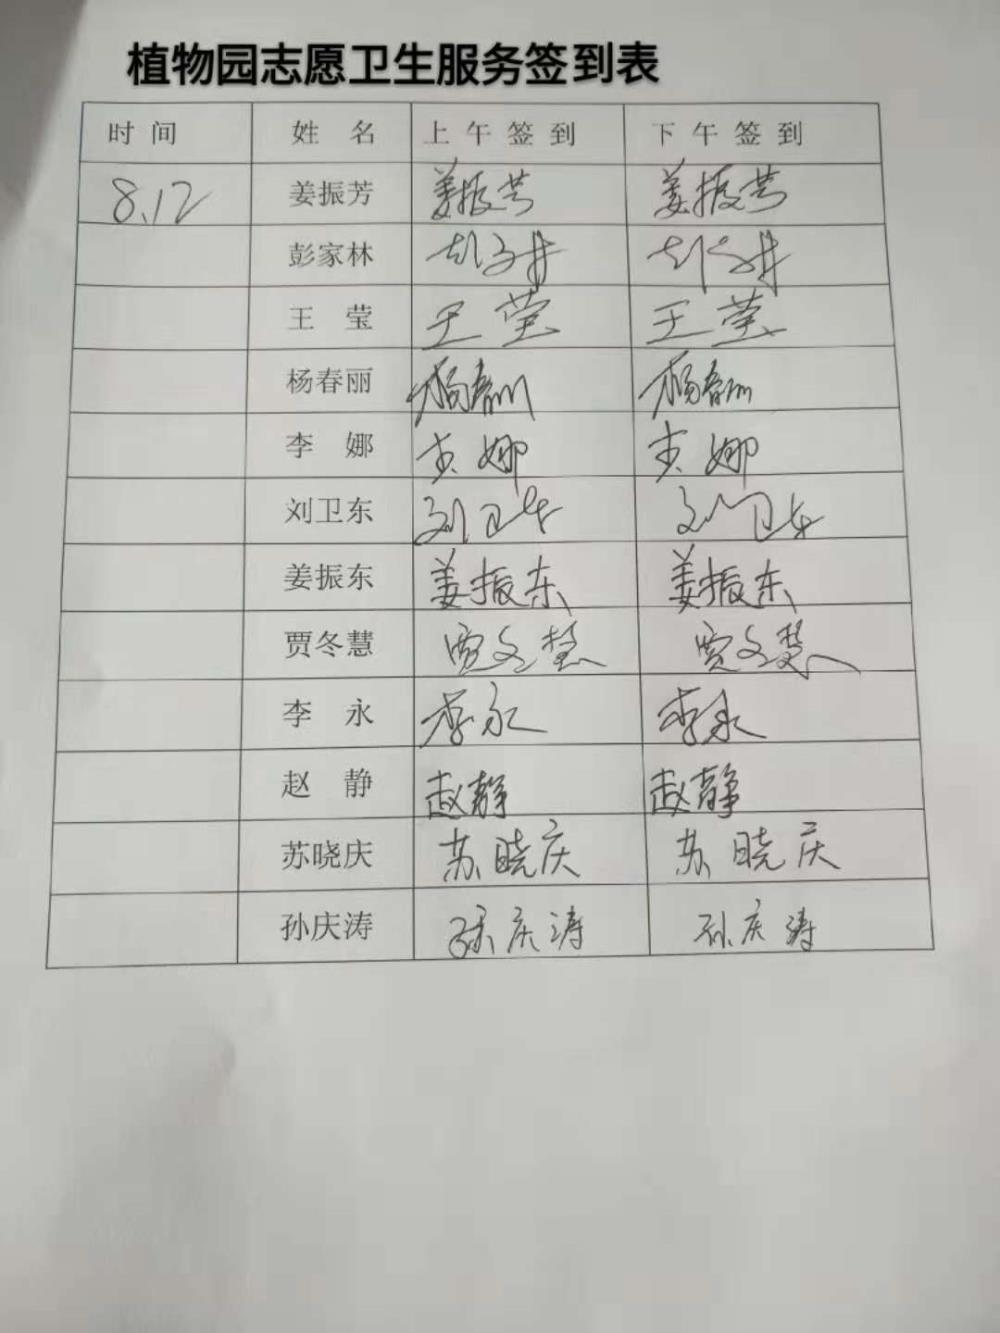 植物园志愿卫生服务签到表
时间 姓 名 上午签到 下午签到
8.12 姜振芳 姜振芳 姜振芳
彭家林 彭家林 彭家林
王 莹 王莹 王莹
杨春丽 杨春丽 杨春丽
李 娜 李娜 李娜
刘卫东 刘卫东 刘卫东
姜振东 姜振东 姜振东
贾冬慧 贾冬慧 贾冬慧
李 永 李永 李永
赵 静 赵静 赵静
苏晓庆 苏晓庆 苏晓庆
孙庆涛 孙庆涛 孙庆涛